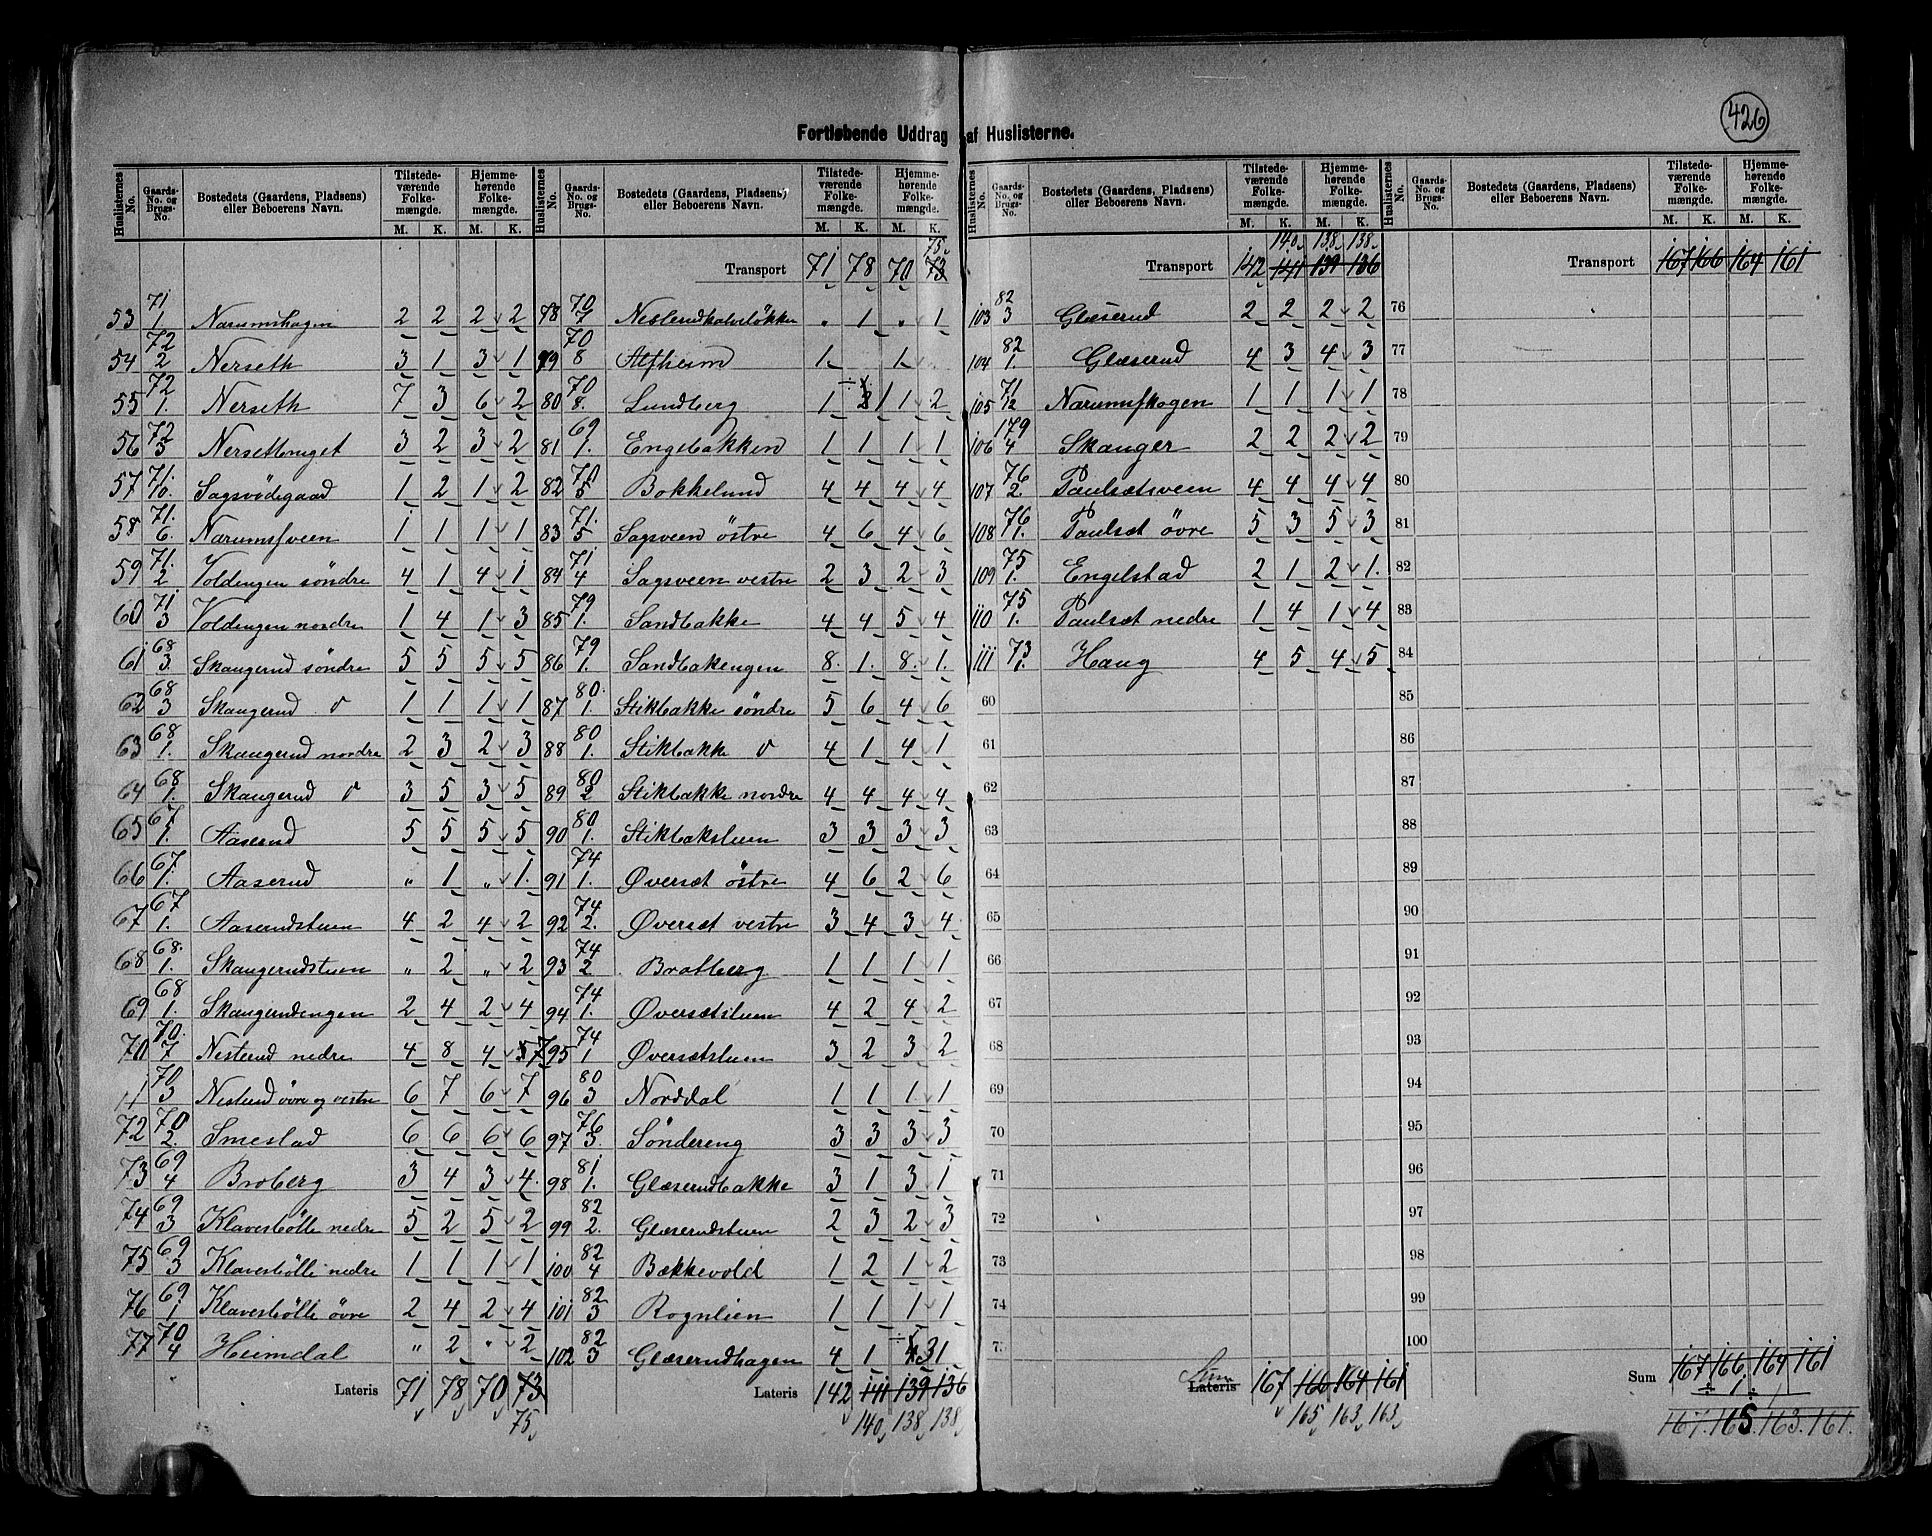 426
Fortløbende Uddrag af Huslisterne.
Huslisternes No. Gaards-No. og Brugs-No. Bostedets (Gaardens, Pladsens) eller Beboerens Navn. Tilstedeværende Folkemængde. M. K. Hjemmehørende Folkemængde. M. K.
53 71/1 Narumshagen 2 2 2 2
54 72/2 Nerseth 3 1 3 1
55 72/1. Nerseth 7 3 6 2
56 72/3 Nersetteniget 3 2 3 2
57 71/10. Sagsvödegaad 1 2 1 2
58 71./6. Narumsveen 1 1 1 1
59 71./2 Voldengen söndre 4 1 4 1
60 71/3 Voldengen nordre 1 4 1 3
61 68/3. Skangerud söndre 5 5 5 5
62 68/3 Skangerud 1 1 1 1
63 68/1. Skangerud nordre 2 3 2 3
64 68/1. Skangerud 3 5 3 5
65 67/1. Aaserud 5 5 5 5
66 67/1. Aaserud " 1 " 1.
67 67/1. Aaserudstuen 4 2 4 2
68 68./1. Skangerudstuen " 2 " 2
69 68/1. Skangerudengen 2 4 2 4
70 70./7 Nesterud nedre 4 8 4 7
70/3 Nesterud övre og vestre 6 7 6 7
72 70/2. Smestad 6 6 6 6
73 69/4 Broberg 3 4 3 4.
74 69/3 Klavesbölle nedre 5 2 5 2
75 69/3 Klavesbölle nedre 1 1 1 1
76 69/1 Klavesbölle övre 2 4 2 4
77 70/4 Heimdal " 2 " 2
Lateris 71 78 70 73
75
Huslisternes No. Gaards-No. og Brugs-No. Bostedets (Gaardens, Pladsens) eller Beboerens Navn. Tilstedeværende Folkemængde. M. K. Hjemmehørende Folkemængde. M. K.
75
Transport 71 78 70 73
78 70/7 Neslerudkalveløkke " 1 " 1
79 70/8 Alfheim 1 1
80 70/8. Lundberg 1 1 1 2
81 69/1. Engebakken 1 1 1 1
82 70/5 Bokkelund 4 4 4 4
83 71./5 Sagsveen östre 4 6 4 6
84 71/4 Sagsveen vestre 2 3 2 3
85 79/1. Sandbakke 4 4 5 4
86 79/1. Sandbakengen 8. 1. 8. 1.
87 80./1. Stikbakke söndre 5 6 4 6
88 80/1. Stikbakke 4 1 4 1
89 80/2 Stikbakke nordre 4 4 4 4
90 80/1. Stikbakstuen 3 3 3 3
91 74/1. Øversæt östre 4 6 2 6
92 74/2. Øversæt vestre 3 4 3 4
93 74/2 Bratberg 1 1 1 1
94 74/1. Øversætstuen 4 2 4 2
95 74/1 Øversætstuen 3 2 3 2
96 80/3 Norddal 1 1 1 1
97 76/3. Söndereng 3 3 3 3
98 81/1. Glæserudbakke 3 1 3 1
99 82/2. Glæserudstuen 2 3 2 3
100 82/4 Bækkevold 1 2 1 2
101 82/3 Rognlien 1 1 1 1
102 82/3 Glæserudhagen 4 1 3 1
Lateris 142 141 139 136
140 138 138
Huslisternes No. Gaards-No. og Brugs-No. Bostedets (Gaardens, Pladsens) eller Beboerens Navn. Tilstedeværende Folkemængde. M. K. Hjemmehørende Folkemængde. M. K.
140 138 138
Transport 142 141 139 136
103 82/3 Glæserud 2 2 2 2
104 82/1. Glæserud 4 3 4 3
105 71/12 Narumskogen 1 1 1 1
106 179/4 Skanger 2 2 2 2
107 76/2. Paulsætsveen 4 4 4 4
108 76/1. Paulsæt övre 5 3 5 3
109 75/1. Engelstad 2 1 2 1.
110 75/1. Paulsæt nedre 1 4 1 4
111 73/1. Haug 4 5 4 5
60
61
62
63
64
65
66
67
68
69
70
71
72
73
74
7
Sum
Lateris 167 166 164 161
165 163 163
Huslisternes No. Gaards-No. og Brugs-No. Bostedets (Gaardens, Pladsens) eller Beboerens Navn. Tilstedeværende Folkemængde. M. K. Hjemmehørende Folkemængde. M. K.
Transport 167 166 164 161
76
77
78
79
80
81
82
83
84
85
86
87
88
89
90
91
92
93
94
95
96
97
98
99
100
Sum 167 166 164 161
÷ 1. 1
167. 165. 163. 161.